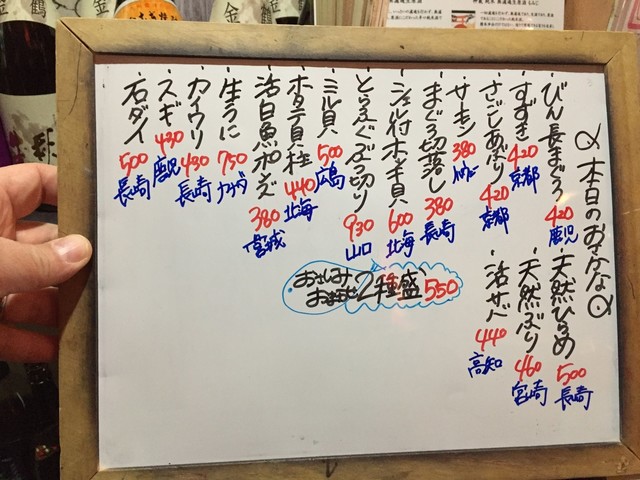 本日のおさかな
びん長まぐろ 420 鹿児
すずき 420 京都
さごしあぶり 420 京都
サーモン 380 ノルウェー
まぐろ切落し 380 長崎
シェル付ホッキ貝 600 北海
とらふぐぶつ切り 930 山口
ミル貝 500 広島
ホタテ貝柱 440 北海
活白魚ポンズ 380 宮城
生うに 750 カナダ
カイワリ 480 長崎
スギ 430 鹿児
石ダイ 500 長崎
天然ひらめ 500 長崎
天然ぶり 460 宮崎
活サバ 440 高知
おさしみ
おまかせ
2種盛 550
金鶴
金